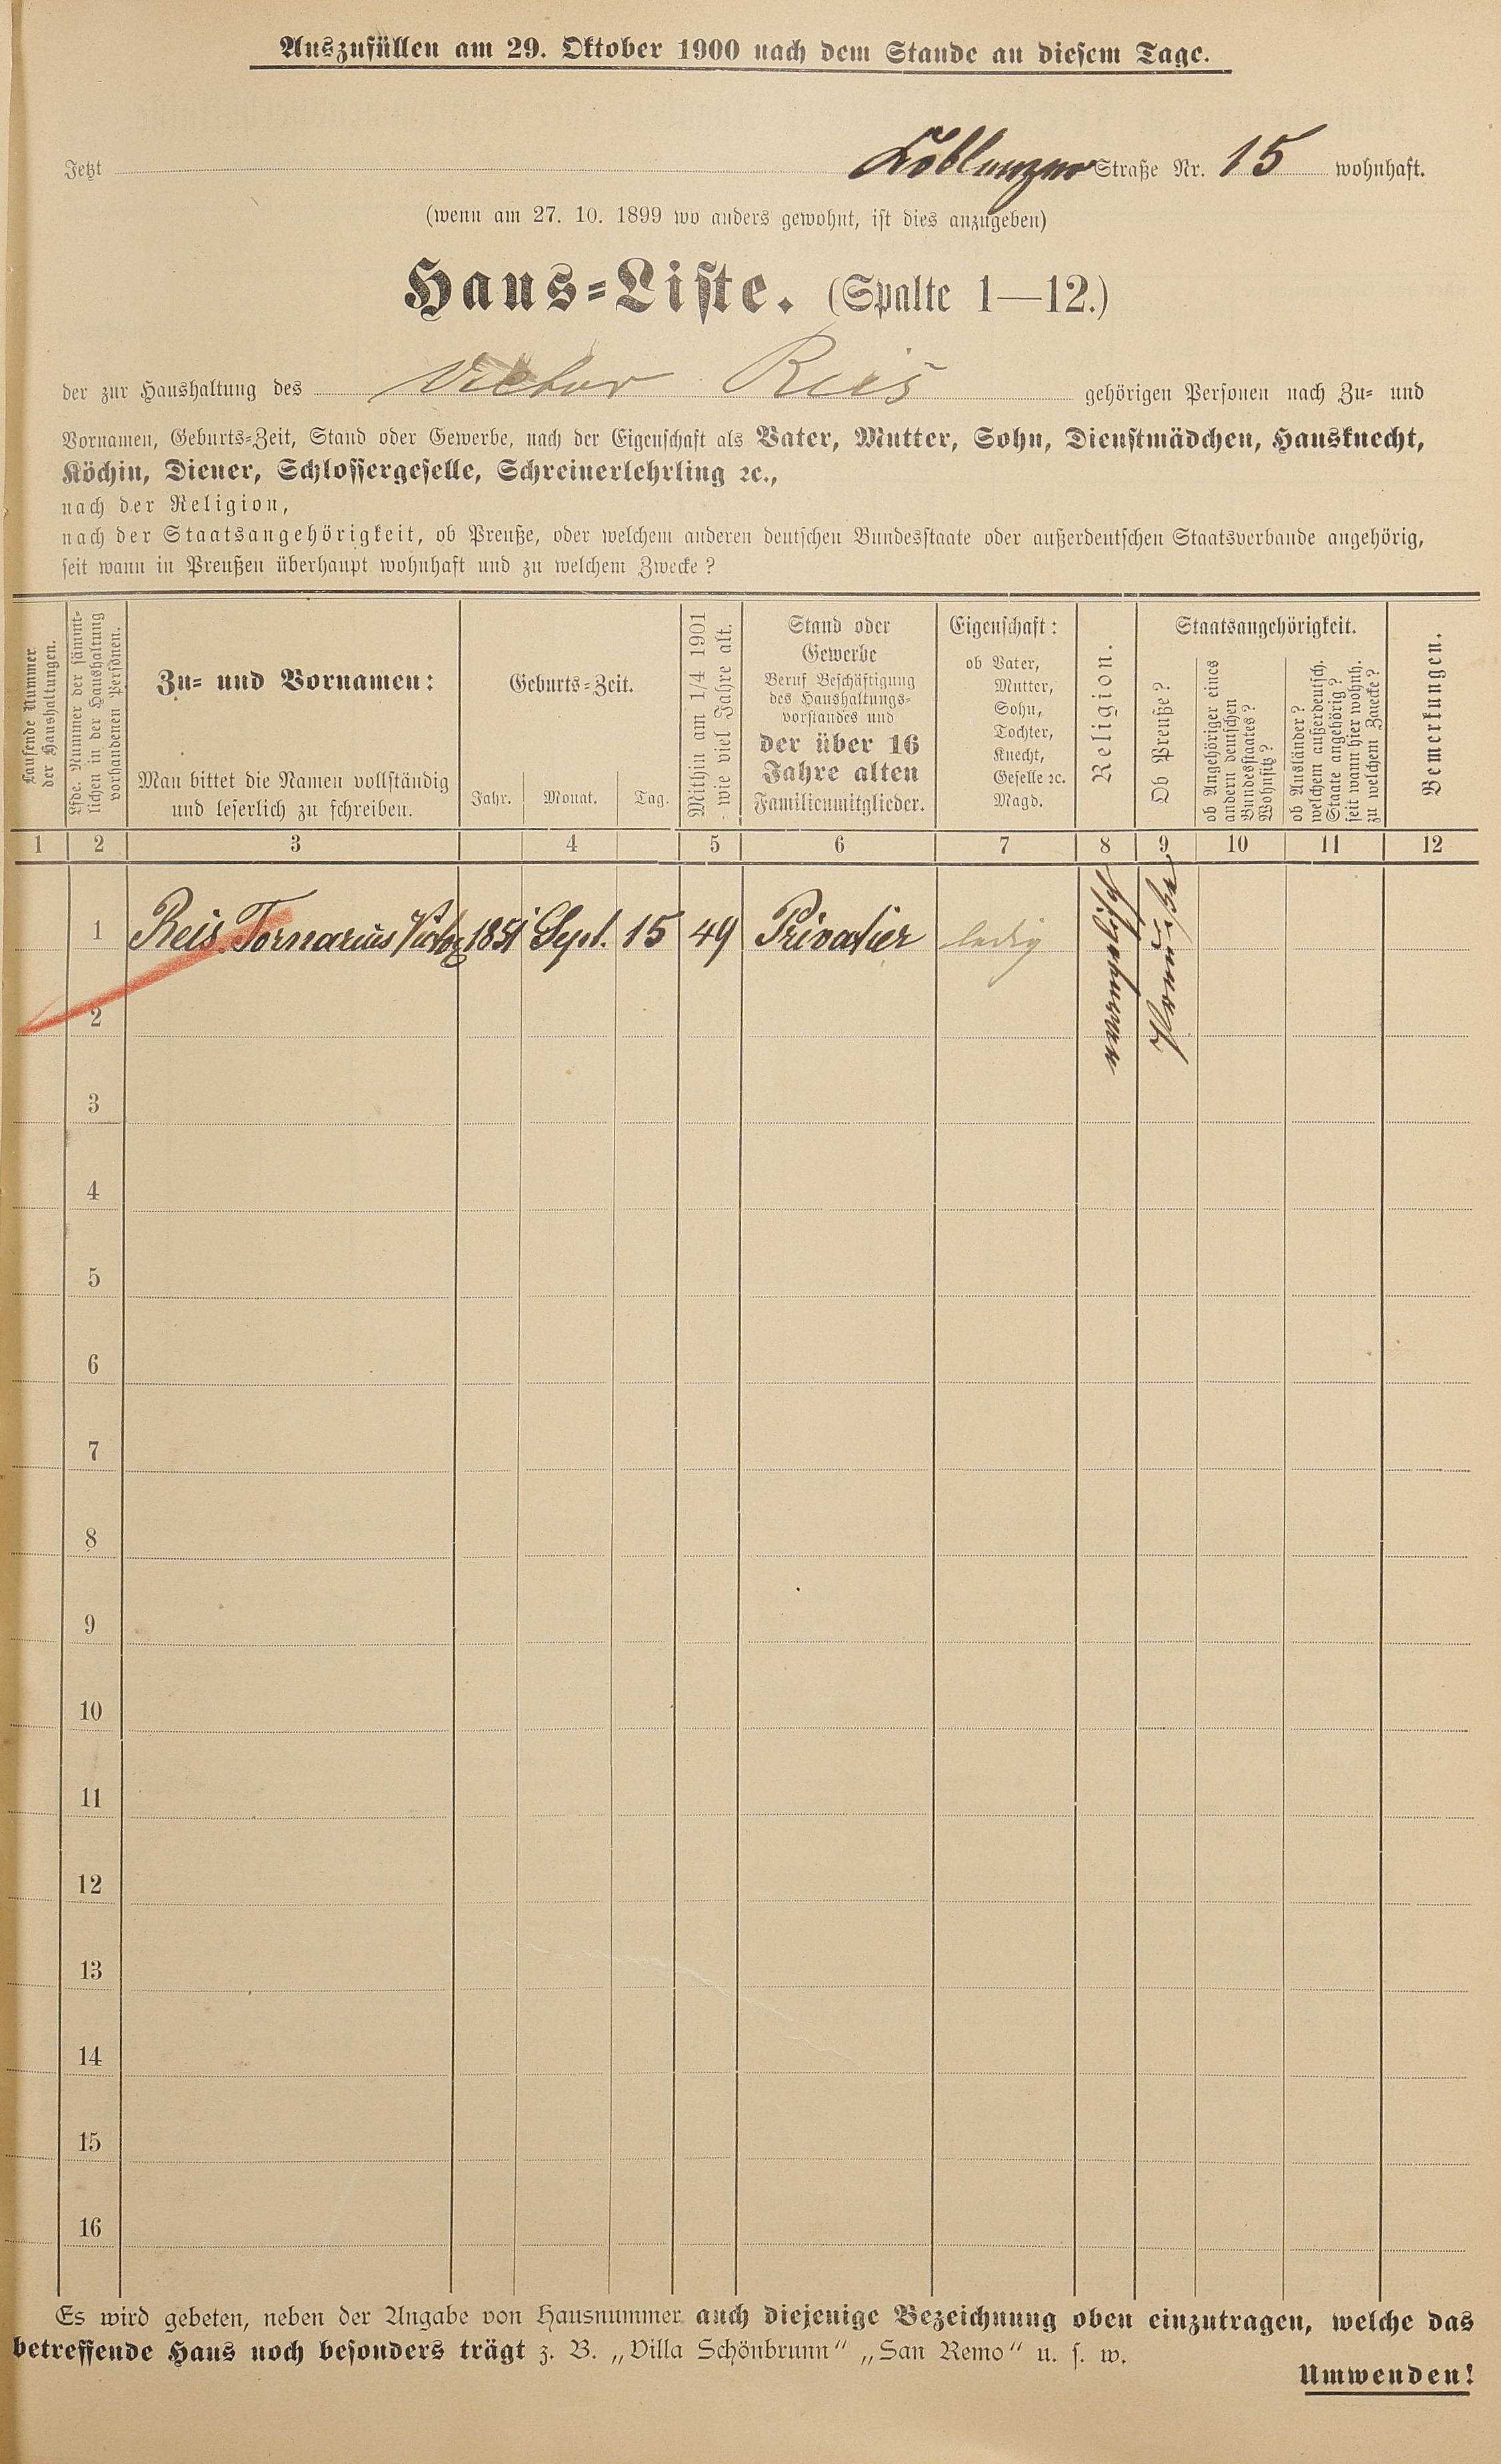 Auszufüllen am 29. Oktober 1900 nach dem Stande an diesem Tage.
Jetzt Koblenzer Straße Nr. 15 wohnhaft.
(wenn am 27. 10. 1899 wo anders gewohnt, ist dies anzugeben)
Haus-Liste. (Spalte 1—12.)
der zur Haushaltung des Victor Reis gehörigen Personen nach Zu- und
Vornamen, Geburts-Zeit, Stand oder Gewerbe, nach der Eigenschaft als Vater, Mutter, Sohn, Dienstmädchen, Hausknecht,
Köchin, Diener, Schlossergeselle, Schreinerlehrling ꝛc.,
nach der Religion,
nach der Staatsangehörigkeit, ob Preuße, oder welchem anderen deutschen Bundesstaate oder außerdeutschen Staatsverbande angehörig,
seit wann in Preußen überhaupt wohnhaft und zu welchem Zwecke?
Laufende Nummer
der Haushaltungen.
Lfde. Nummer der sämmt-
lichen in der Haushaltung
vorhandenen Personen.
Zu- und Vornamen:
Man bittet die Namen vollständig
und leserlich zu schreiben.
Geburts-Zeit.
Jahr. Monat. Tag.
Mithin am 1/4 1901
wie viel Jahre alt.
Stand oder
Gewerbe
Beruf Beschäftigung
des Haushaltungs-
vorstandes und
der über 16
Jahre alten
Familienmitglieder.
Eigenschaft:
ob Vater,
Mutter,
Sohn,
Tochter,
Knecht,
Geselle ꝛc.
Magd.
Religion.
Staatsangehörigkeit.
Ob Preuße?
ob Angehöriger eines
andern deutschen
Bundesstaates?
Wohnsitz?
ob Ausländer?
welchem außerdeutsch.
Staate angehörig?
seit wann hier wohnh.
zu welchem Zwecke?
Bemerkungen.
1 2 3 4 5 6 7 8 9 10 11 12
1 Reis Victor 1851 Sept. 15 49 Privatier ledig
2
3
4
5
6
7
8
9
10
11
12
13
14
15
16
Es wird gebeten, neben der Angabe von Hausnummer auch diejenige Bezeichnung oben einzutragen, welche das
betreffende Haus noch besonders trägt z. B. „Villa Schönbrunn“ „San Remo“ u. s. w.
Umwenden!